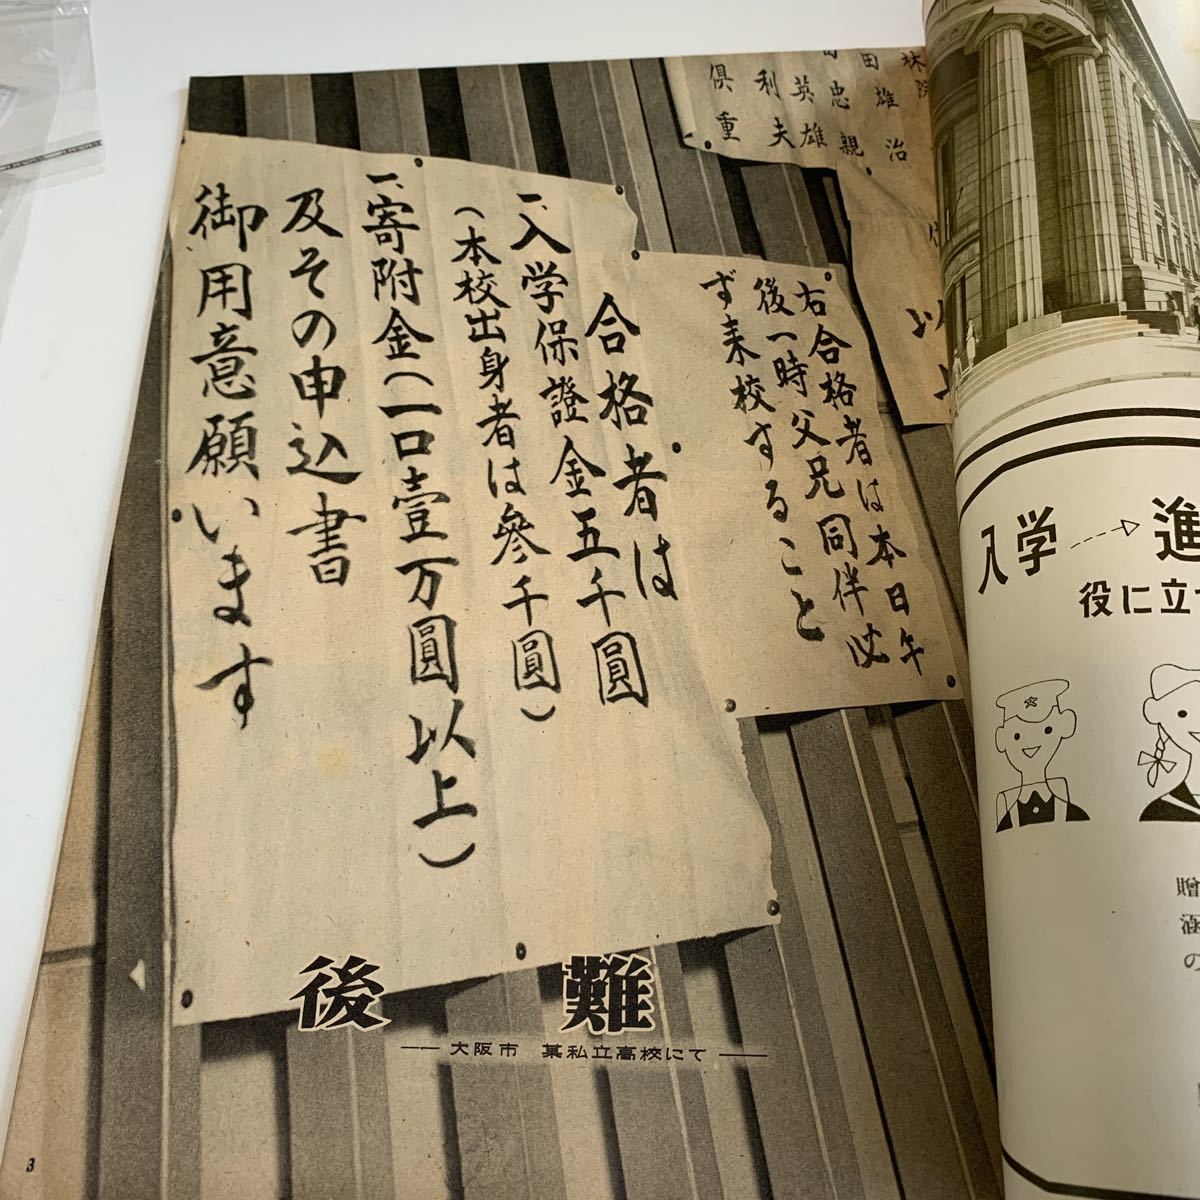 林
田雄治
忠親
英雄
利夫
倶重
以上
右合格者は本日午
後一時父兄同伴必
ず来校すること
合格者は
一、入学保證金五千圓
(本校出身者は參千圓)
一、寄附金(一口壹万圓以上)
及その申込書
御用意願います
後難
大阪市 某私立高校にて
3
入学
進
役に立つ
贈
の